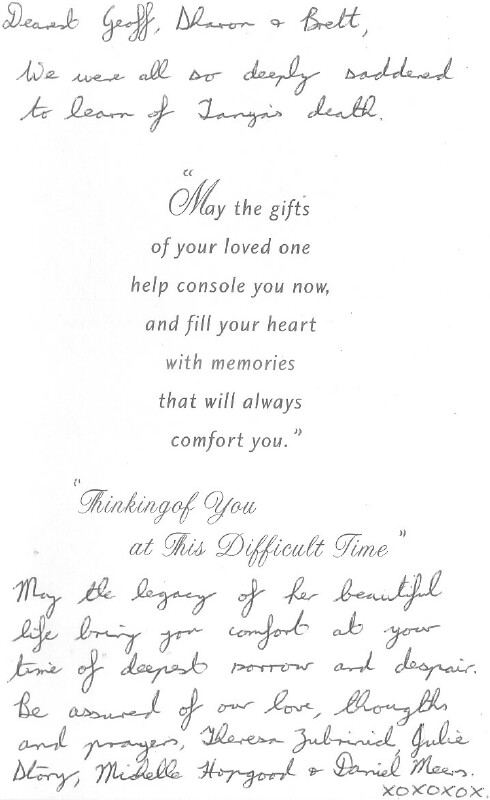 Dearest Geoff, Sharon & Brett,
We were all so deeply saddened
to learn of Tanya's death.
"May the gifts
of your loved one
help console you now,
and fill your heart
with memories
that will always
comfort you."
"Thinking of You
at This Difficult Time"
May the legacy of her beautiful
life bring you comfort at your
time of deepest sorrow and despair.
Be assured of our love, thougths
and prayers, Theresa Zubrinid, Julie
Story, Michelle Hopgood & Daniel Meers.
XOXOXOX.